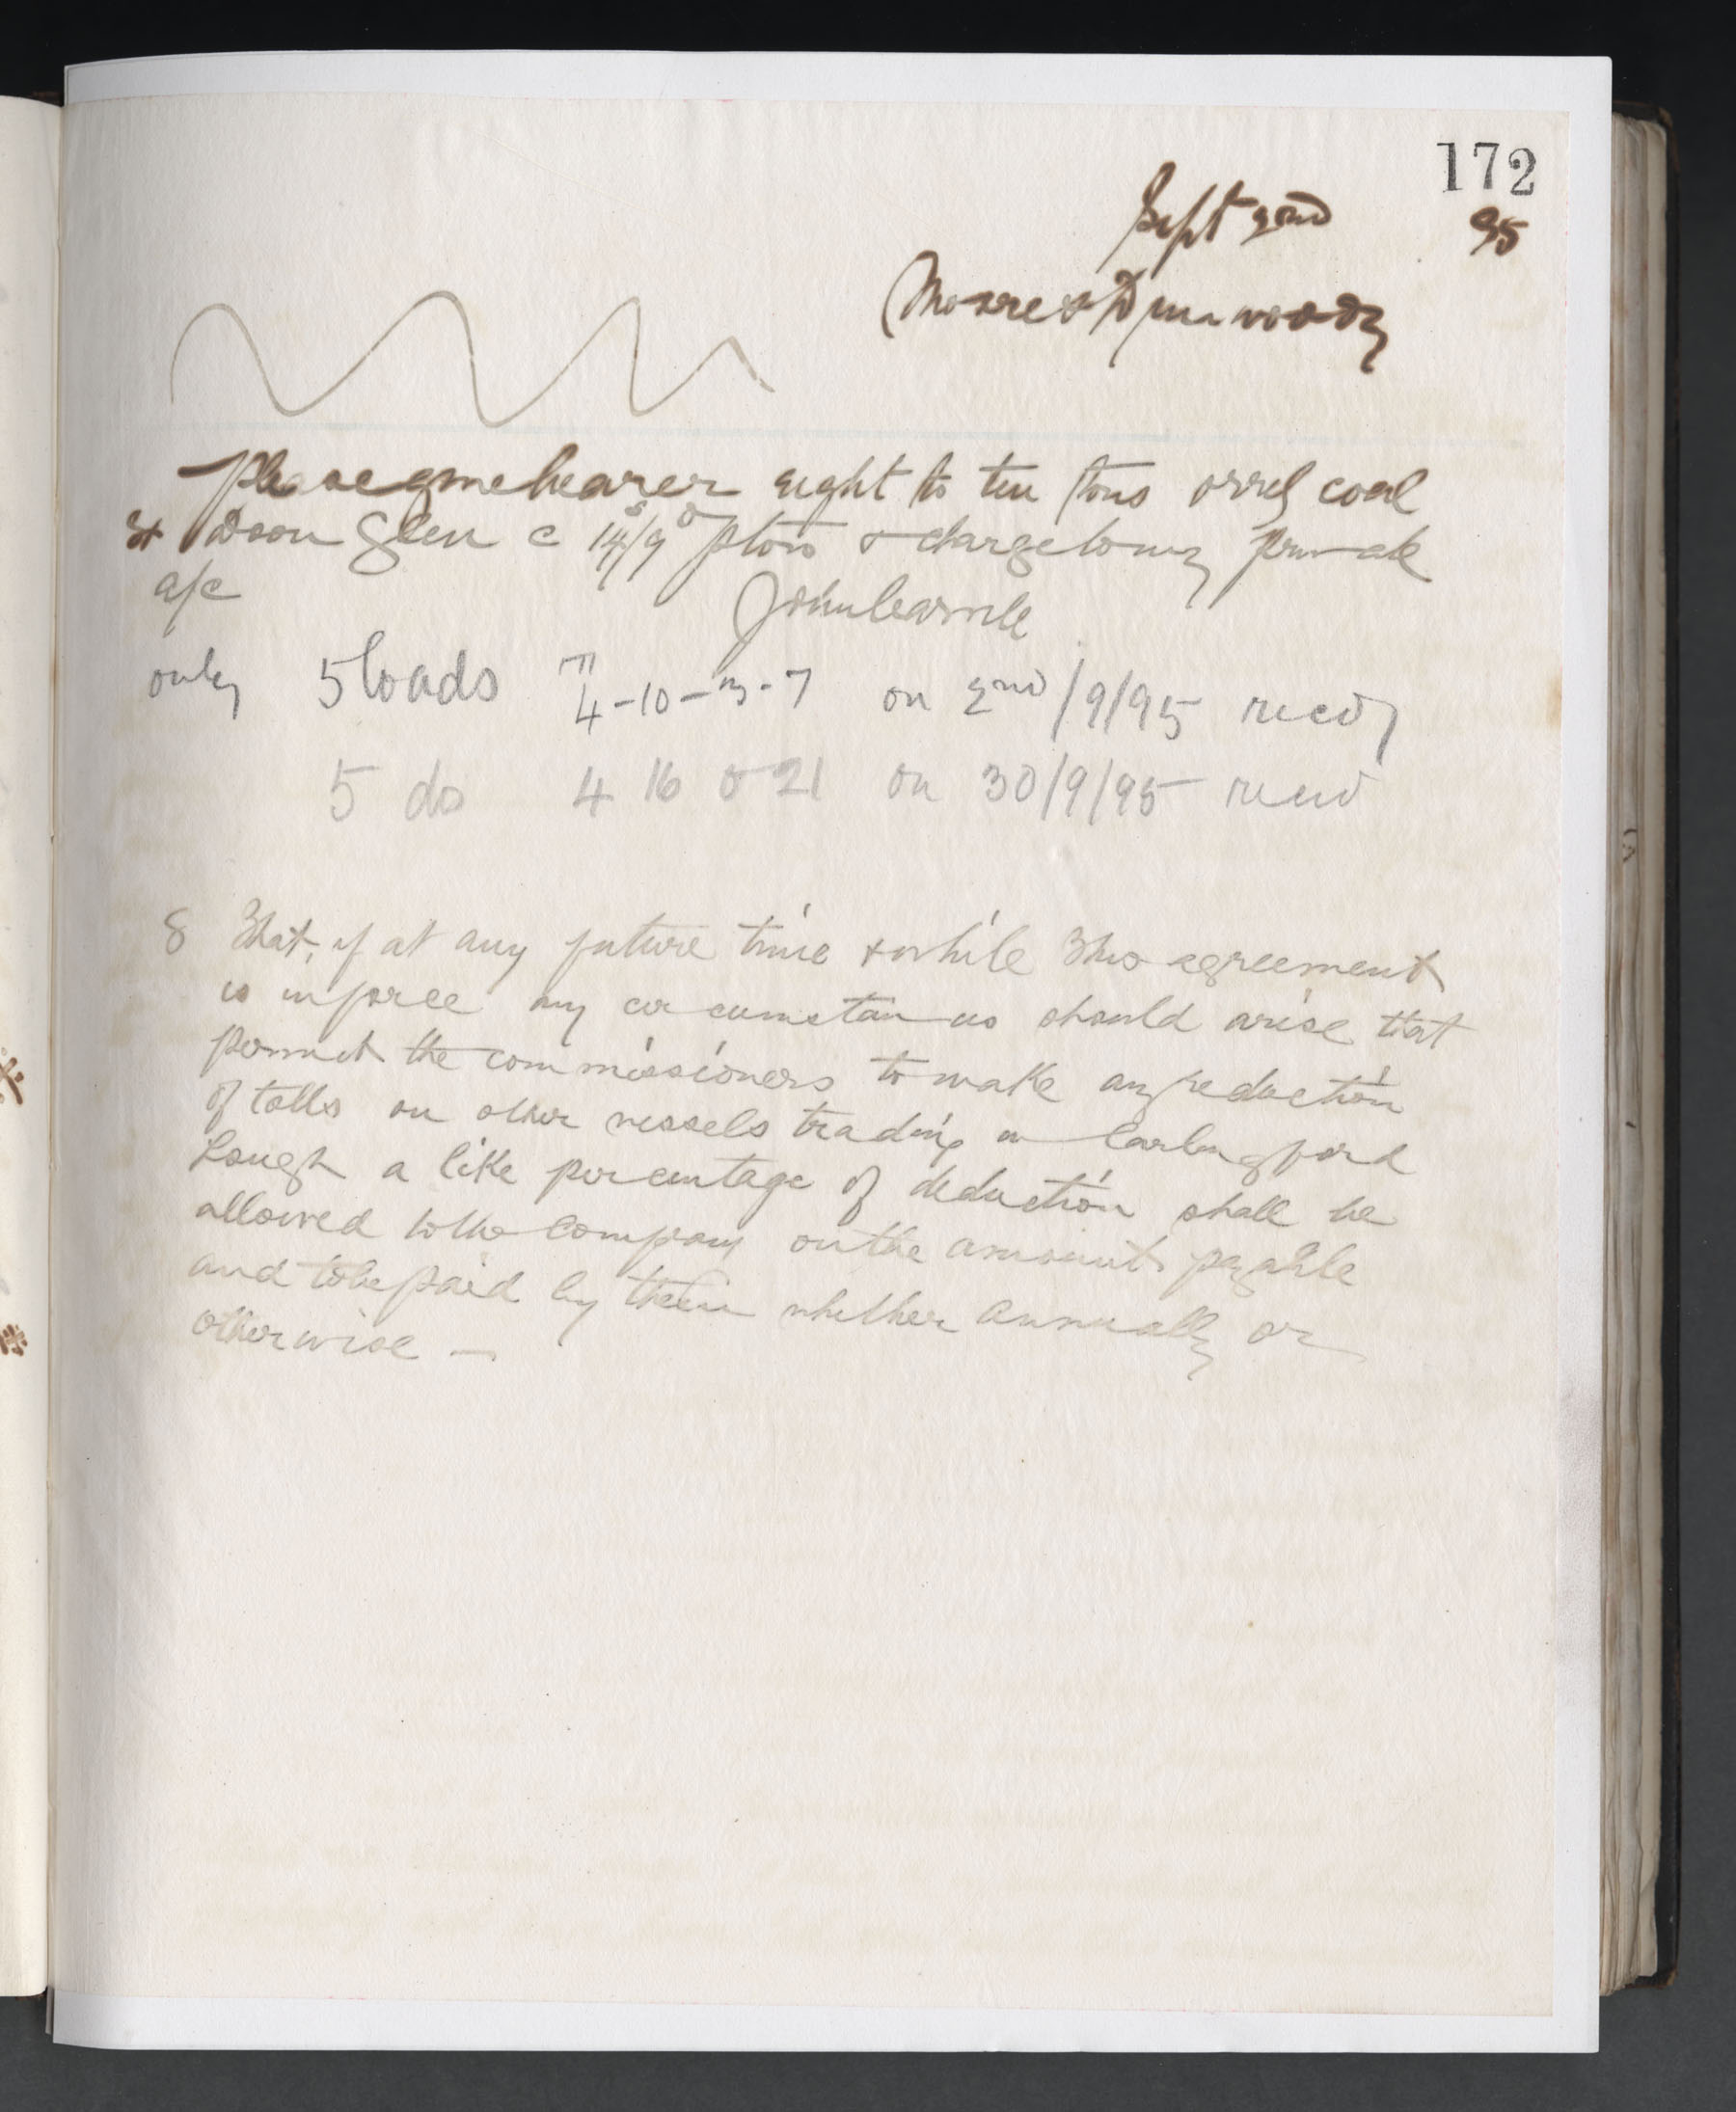 172
Sept 2nd 95
Moore & Dunwoody
Please give bearer eight to ten tons orrel coal
Doon Glen c 14s/9d p ton & charge to my private
a/c
John Carvill
only 5 loads T 4-10-3-7 on 2nd/9/95 recd
5 do 4 16 0 21 on 30/9/95 recd
8 That, if at any future time & while this agreement
is in force any circumstances should arise that
permit the commissioners to make any reduction
of tolls on other vessels trading in Carlingford
Lough a like percentage of deduction shall be
allowed to the Company on the amount payable
and to be paid by them whether annually or
otherwise —